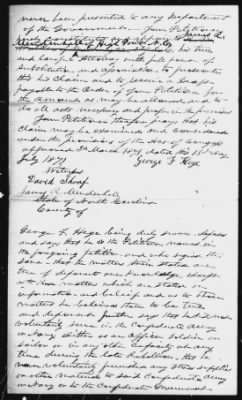 never been presented to any Department
of the Government. Your Petitioner
James A.
Mendenhall of High Point N.C. his true
and lawful Attorney with full power of
substitution and association, to prosecute
this his Claim and to receive a Draft
payable to the Order of your Petitioner for
the amount as may be allowed and to
do all acts necessary and proper in the premises
Your Petitioner therefore prays that his
Claim may be examined and considered
under the provisions of the Acts of Congress
approved 3d March 1871 dated this day
July 1871 George F. Hege
Witness
David Thorp
James A. Mendenhall
State of North Carolina
County of
George F. Hege being duly sworn, deposes
and says that he is the Petitioner named in
the foregoing petition and who signed the
same, that the matters therein stated are
true of deponent's own knowledge except
as to those matters which are stated on
information and belief and as to those
matters he believes them to be true
and deponent further says that he did not
voluntarily serve in the Confederate Army
or Navy either as an officer Soldier or
sailor or in any other capacity at any
time during the late Rebellion, that he
never voluntarily furnished any stores supplies
or other materials to said Confederate Army
or Navy or to the Confederate Government